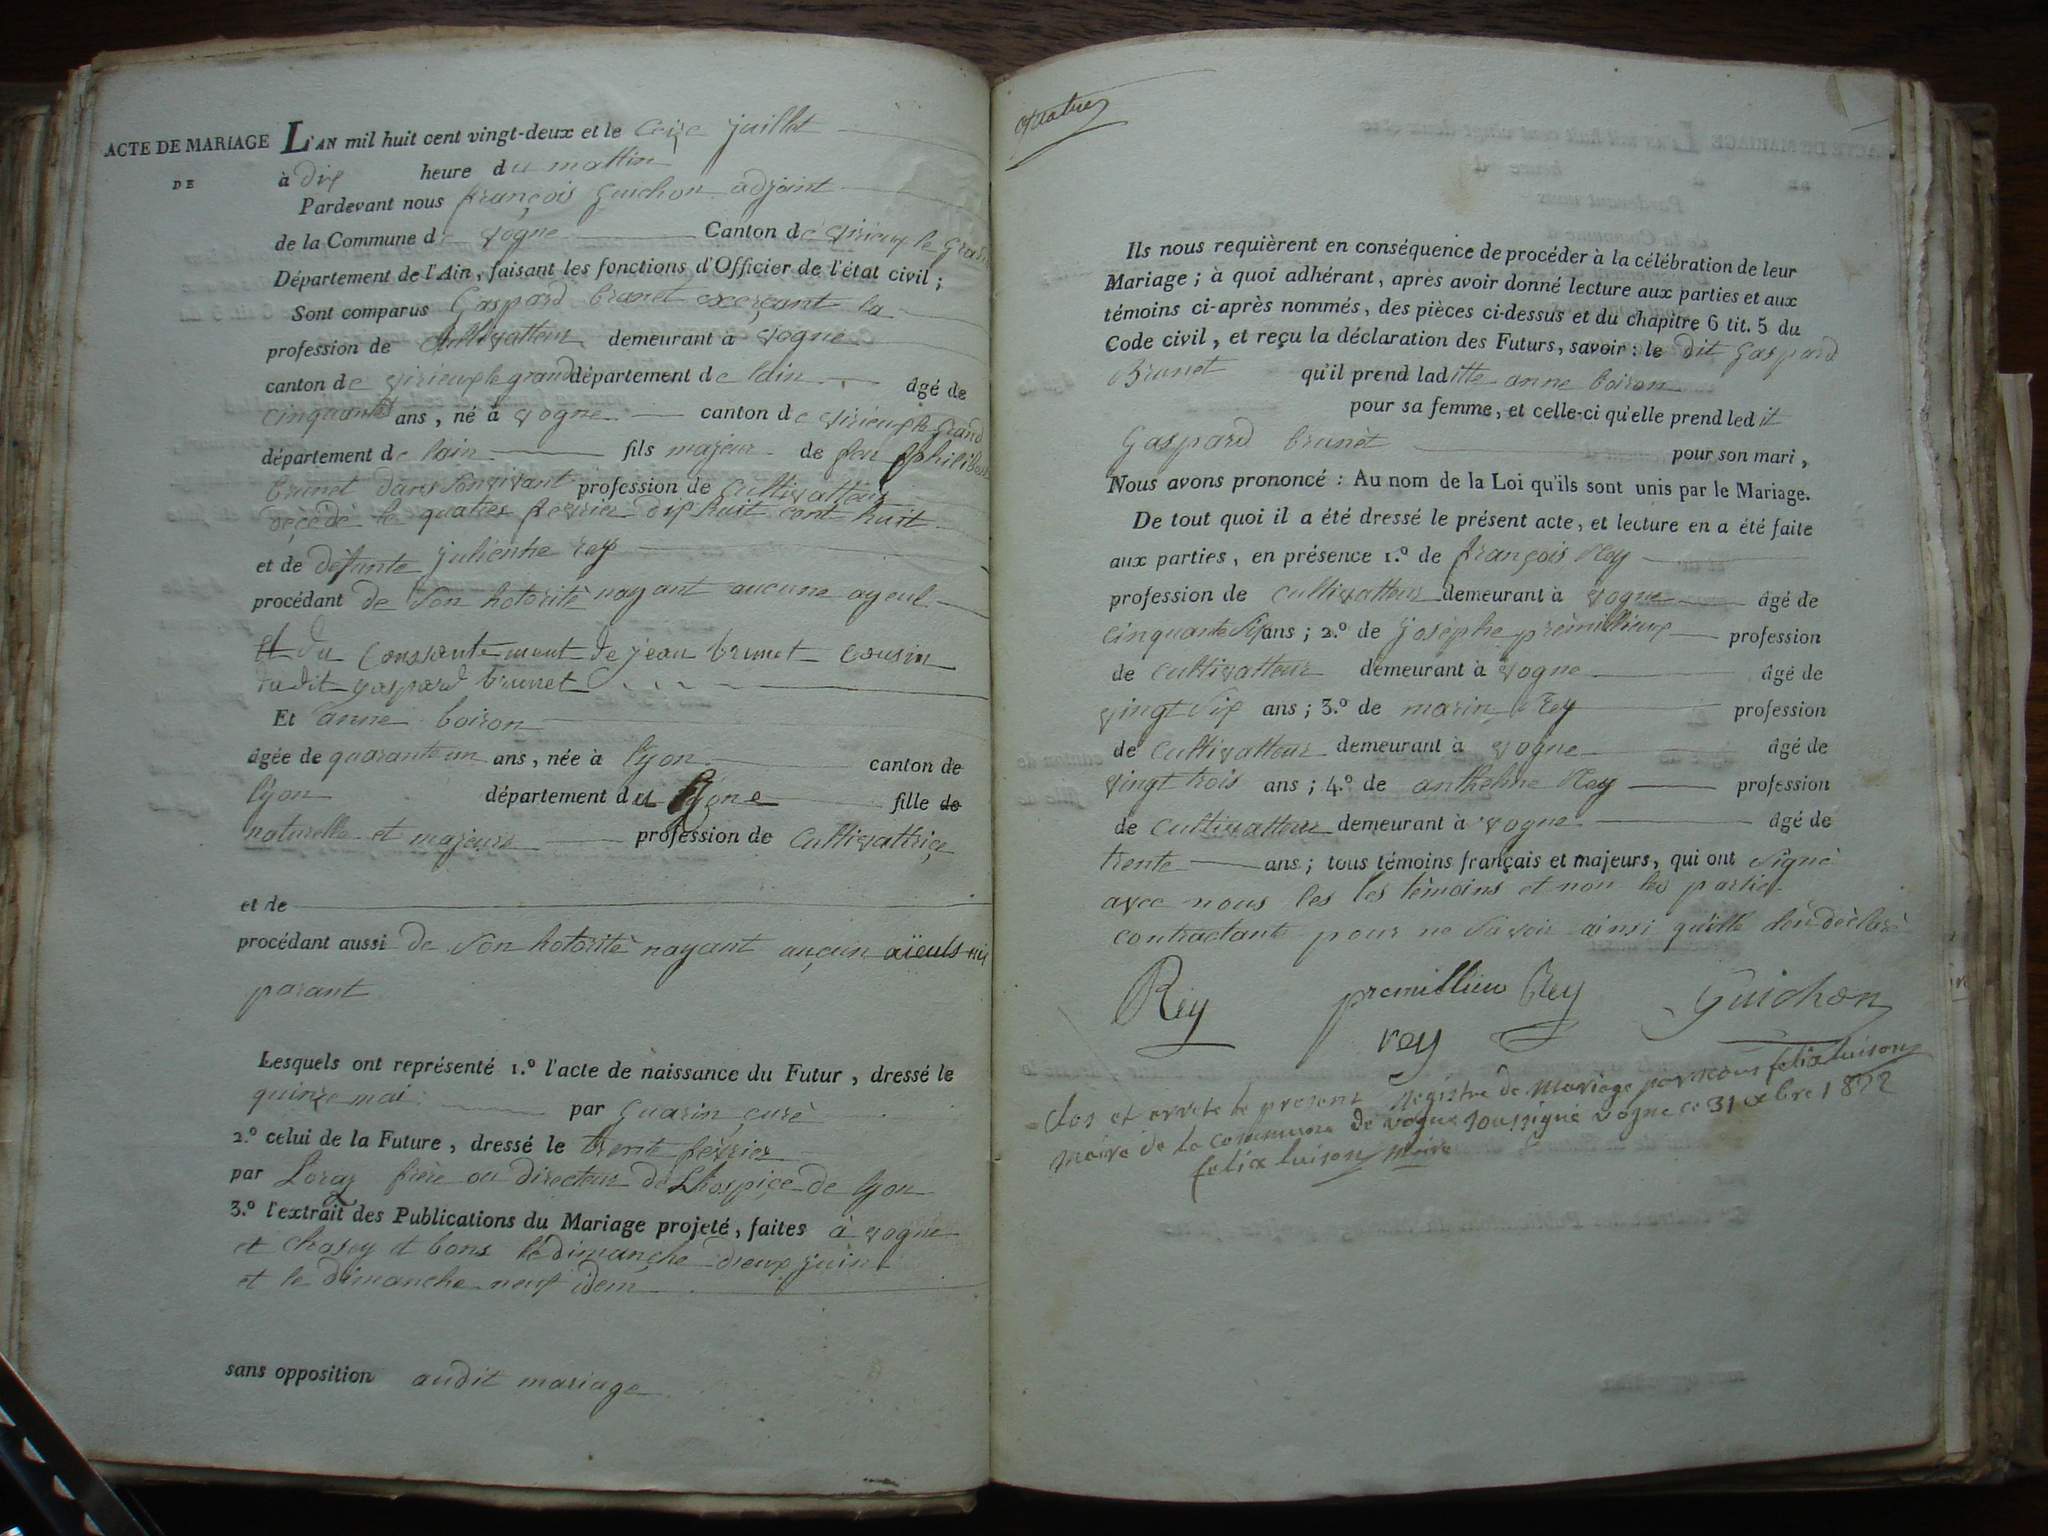 ACTE DE MARIAGE
DE
L'AN mil huit cent vingt-deux et le juillet
à dix heure du mattin
Pardevant nous françois Guichon adjoint
de la Commune de vogne Canton de virieux le grand
Département de l'Ain, faisant les fonctions d'Officier de l'état civil ;
Sont comparus Gaspard brunet exerçant la
profession de Cultivatteur demeurant à vogne
canton de virieux le grand département de lain âgé de
cinquante ans, né à vogne canton de virieux le grand
département de lain fils majeur de feu philibert
brunet dans sonvivant profession de cultivatteur
décédé le quatres fevrier dix huit cent huit
et de défunte julienne rey
procédant de son hotorité nayant aucune ayeul
Et du conssentement de jean brunet cousin
dudit gaspard brunet
Et anne boiron
âgée de quarante un ans, née à lyon canton de
lyon département du Rône fille de
naturelle et majeure profession de cultivattrice
et de
procédant aussi de son hotorité nayant auçun aïeuls ni
parant
Lesquels ont représenté 1.º l'acte de naissance du Futur, dressé le
quinze mai par Guarin curé
2.º celui de la Future, dressé le trente février
par frère ou directeur de Lhospice de lyon
3.º l'extrait des Publications du Mariage projeté, faites à vogne
et chasey et bons le dimançhe dieux juin
et le dimanche neuf idem
sans opposition audit mariage
quatre
Ils nous requièrent en conséquence de procéder à la célébration de leur
Mariage ; à quoi adhérant, après avoir donné lecture aux parties et aux
témoins ci-après nommés, des pièces ci-dessus et du chapitre 6 tit. 5 du
Code civil, et reçu la déclaration des Futurs, savoir : le dit Gaspard
Brunet qu'il prend laditte anne boiron
pour sa femme, et celle-ci qu'elle prend ledit
Gaspard brunet pour son mari,
Nous avons prononcé : Au nom de la Loi qu'ils sont unis par le Mariage.
De tout quoi il a été dressé le présent acte, et lecture en a été faite
aux parties, en présence 1.º de françois Rey
profession de cultivatteur demeurant à vogne âgé de
cinquante six ans ; 2.º de josèphe prémillieux profession
de cultivatteur demeurant à vogne âgé de
vingt six ans ; 3.º de marin Rey profession
de cultivatteur demeurant à vogne âgé de
vingt trois ans ; 4.º de anthelme Rey profession
de cultivatteur demeurant à vogne âgé de
trente ans ; tous témoins français et majeurs, qui ont signé
avec nous les les témoins et non les partie
contractante pour ne savoir ainsi quelle déclaré
Rey premillieu Rey Guichon
rey
Clos et arrete le present Registre de Mariage par nous felix luison
maire de la commune de vogne soussigné vogne ce 31 xbre 1822
felix luison maire